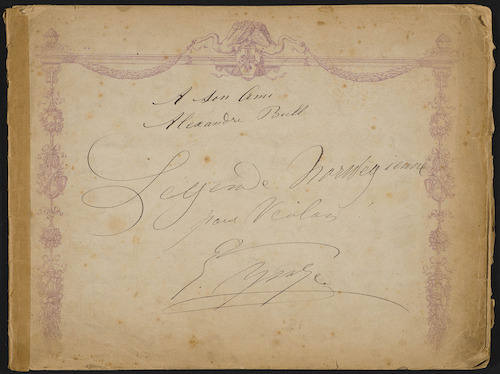 A Son Ami
Alexandre Bull
Légende Norwégienne
pour Violon
E. Ysaÿe